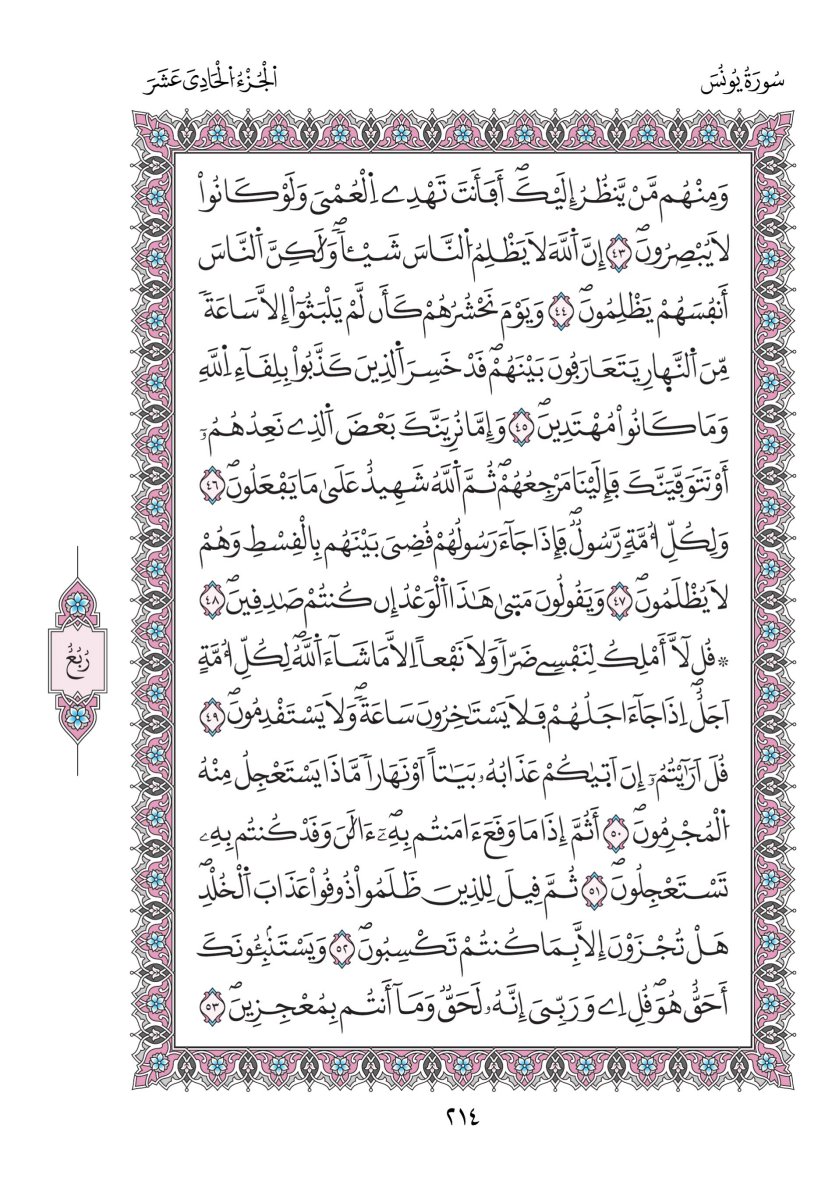 سُورَةُ يُونُسَ
اَ۬لْجُزْءُ اُ۬لْحَادِيَ عَشَرَ
وَمِنْهُم مَّنْ يَّنظُرُ إِلَيْكَۖ أَفَأَنتَ تَهْدِے اِ۬لْعُمْيَ وَلَوْ كَانُواْ
لَا يُبْصِرُونَۖ ٤٣ إِنَّ اَ۬للَّهَ لَا يَظْلِمُ اُ۬لنَّاسَ شَيْـٔاٗۖ وَلَٰكِنَّ اَ۬لنَّاسَ
أَنفُسَهُمْ يَظْلِمُونَۖ ٤٤ وَيَوْمَ نَحْشُرُهُمْ كَأَن لَّمْ يَلْبَثُوٓاْ إِلَّا سَاعَةٗ
مِّنَ اَ۬لنَّهارِ يَتَعَارَفُونَ بَيْنَهُمْۖ قَدْ خَسِرَ اَ۬لذِينَ كَذَّبُواْ بِلِقَآءِ اِ۬للَّهِ
وَمَا كَانُواْ مُهْتَدِينَۖ ٤٥ وَإِمَّا نُرِيَنَّكَ بَعْضَ اَ۬لذِے نَعِدُهُمُۥٓ
أَوْ نَتَوَفَّيَنَّكَ فَإِلَيْنَا مَرْجِعُهُمْۖ ثُمَّ اَ۬للَّهُ شَهِيدٌ عَلَىٰ مَا يَفْعَلُونَۖ ٤٦
وَلِكُلِّ أُمَّةٖ رَّسُولٞۖ فَإِذَا جَآءَ رَسُولُهُمْ قُضِيَ بَيْنَهُم بِالْقِسْطِ وَهُمْ
لَا يُظْلَمُونَۖ ٤٧ وَيَقُولُونَ مَتۭيٰ هَٰذَا اَ۬لْوَعْدُ إِن كُنتُمْ صَٰدِقِينَۖ ٤٨
۞ قُل لَّآ أَمْلِكُ لِنَفْسِے ضَرّاٗ وَلَا نَفْعاً اِلَّا مَا شَآءَ اَ۬للَّهُۖ لِكُلِّ أُمَّةٍ
اَجَلٌۖ اِذَا جَآءَ اجَلُهُمْ فَلَا يَسْتَٰخِرُونَ سَاعَةٗۖ وَلَا يَسْتَقْدِمُونَۖ ٤٩
قُلَ اَرَٰٓيْتُمُۥٓ إِنَ اَتۭيٰكُمْ عَذَابُهُۥ بَيَٰتاً اَوْ نَهَاراٗ مَّاذَا يَسْتَعْجِلُ مِنْهُ
اُ۬لْمُجْرِمُونَۖ ٥٠ أَثُمَّ إِذَا مَا وَقَعَ ءَامَنتُم بِهِۦٓۖ ءَآلَٰنَ وَقَدْ كُنتُم بِهِۦ
تَسْتَعْجِلُونَۖ ٥١ ثُمَّ قِيلَ لِلذِينَ ظَلَمُواْ ذُوقُواْ عَذَابَ اَ۬لْخُلْدِۖ
هَلْ تُجْزَوْنَ إِلَّا بِمَا كُنتُمْ تَكْسِبُونَۖ ٥٢ وَيَسْتَنۢبِـُٔونَكَ
أَحَقٌّ هُوَۖ قُلِ اِے وَرَبِّيَ إِنَّهُۥ لَحَقّٞۖ وَمَآ أَنتُم بِمُعْجِزِينَۖ ٥٣
رُبُعُ
٢١٤